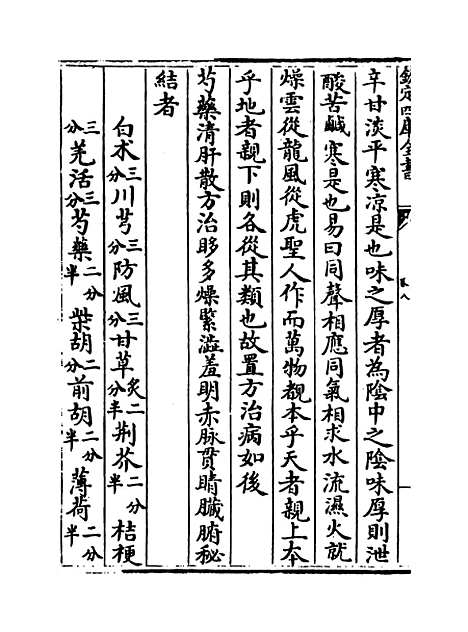 欽定四庫全書
卷八
辛甘淡平寒凉是也味之厚者為陰中之陰味厚則泄
酸苦鹹寒是也易曰同聲相應同氣相求水流濕火就
燥雲從龍風從虎聖人作而萬物覩本乎天者親上本
乎地者親下則各從其類也故置方治病如後
芍藥清肝散方治眵多燥緊澁羞明赤脉貫睛臟腑秘
結者
白术三分川芎三分防風三分甘草炙二分半荆芥二分半桔梗
三分羌活三分芍藥二分半柴胡二分前胡二分半薄荷二分半